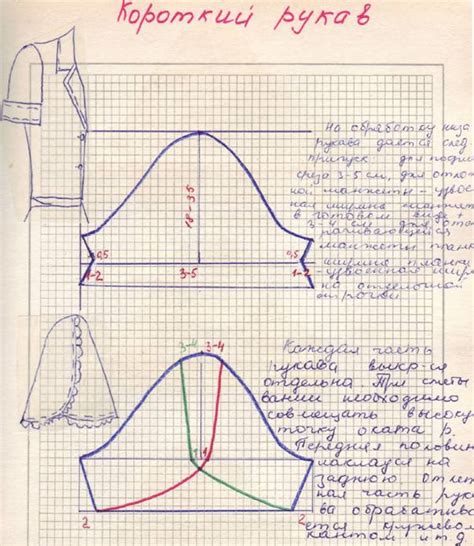 Короткий рукав
На обработку низа
рукава дается след.
припуск для подги
среза 3-5 см, для отло
ной манжеты - удвоен
ная ширина манжеты
в готовом виде +
3-4 см для отво
рачивающейся
манжеты планк
ширина планки
- удвоенная шир
на отделочной
строчки
18-35
0,5
0,5
1-2
3-5
1-2
3-4
3-4
Каждая часть
рукава выкр-ся
отдельна При смёты
вании необходимо
совмещать высоку
точку оката р.
Передняя половин
накладся на
заднюю. Отлет
ная часть рук
ва обрабатыва
ется кружевом
кантом и т.д.
1
1
2
2